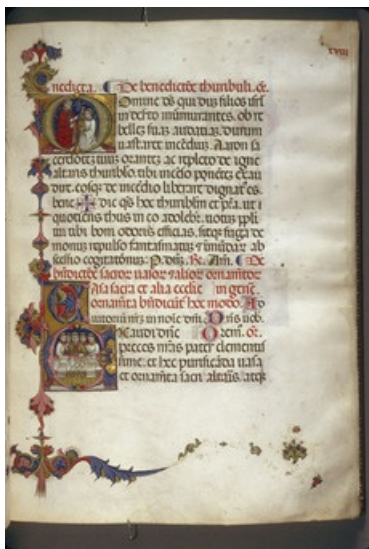 lviii
nedicta. De benedictōe thuribuli. Or.
Omine ds qui dum filios isrl
in deserto murmurantes. ob re
belles suas audatias. dirum
uastaret incēdium. Aaron sa
cerdotez tuuz orantez ac repleto de igne
altaris thuribulo. tibi incēso ponētez exau
dire. eosqz de incēdio liberare dignatus es.
bene dic qs hoc thuribulum et pta. ut
quotiens thus in eo adolebit. uotiuus ppli
tui tibi bom odoris efficias. sitqz fuga de
monuz repulso fantasmatuz et īmūdar ab
scessio cogitationuz. P. dnuz. R. Am. De
būdictōe sacror uasor et alior ornamētor
Asa sacra et alia ecclie in gnē
ornamēta būdicunt hoc modo. Ad
iutoriu nrm in noīe dnī. Dns uob.
Exaudi dne Oremus. or.
preces nras pater clementis
sime. et hoc purificāda uasa
et ornamēta sacri altaris. atqz